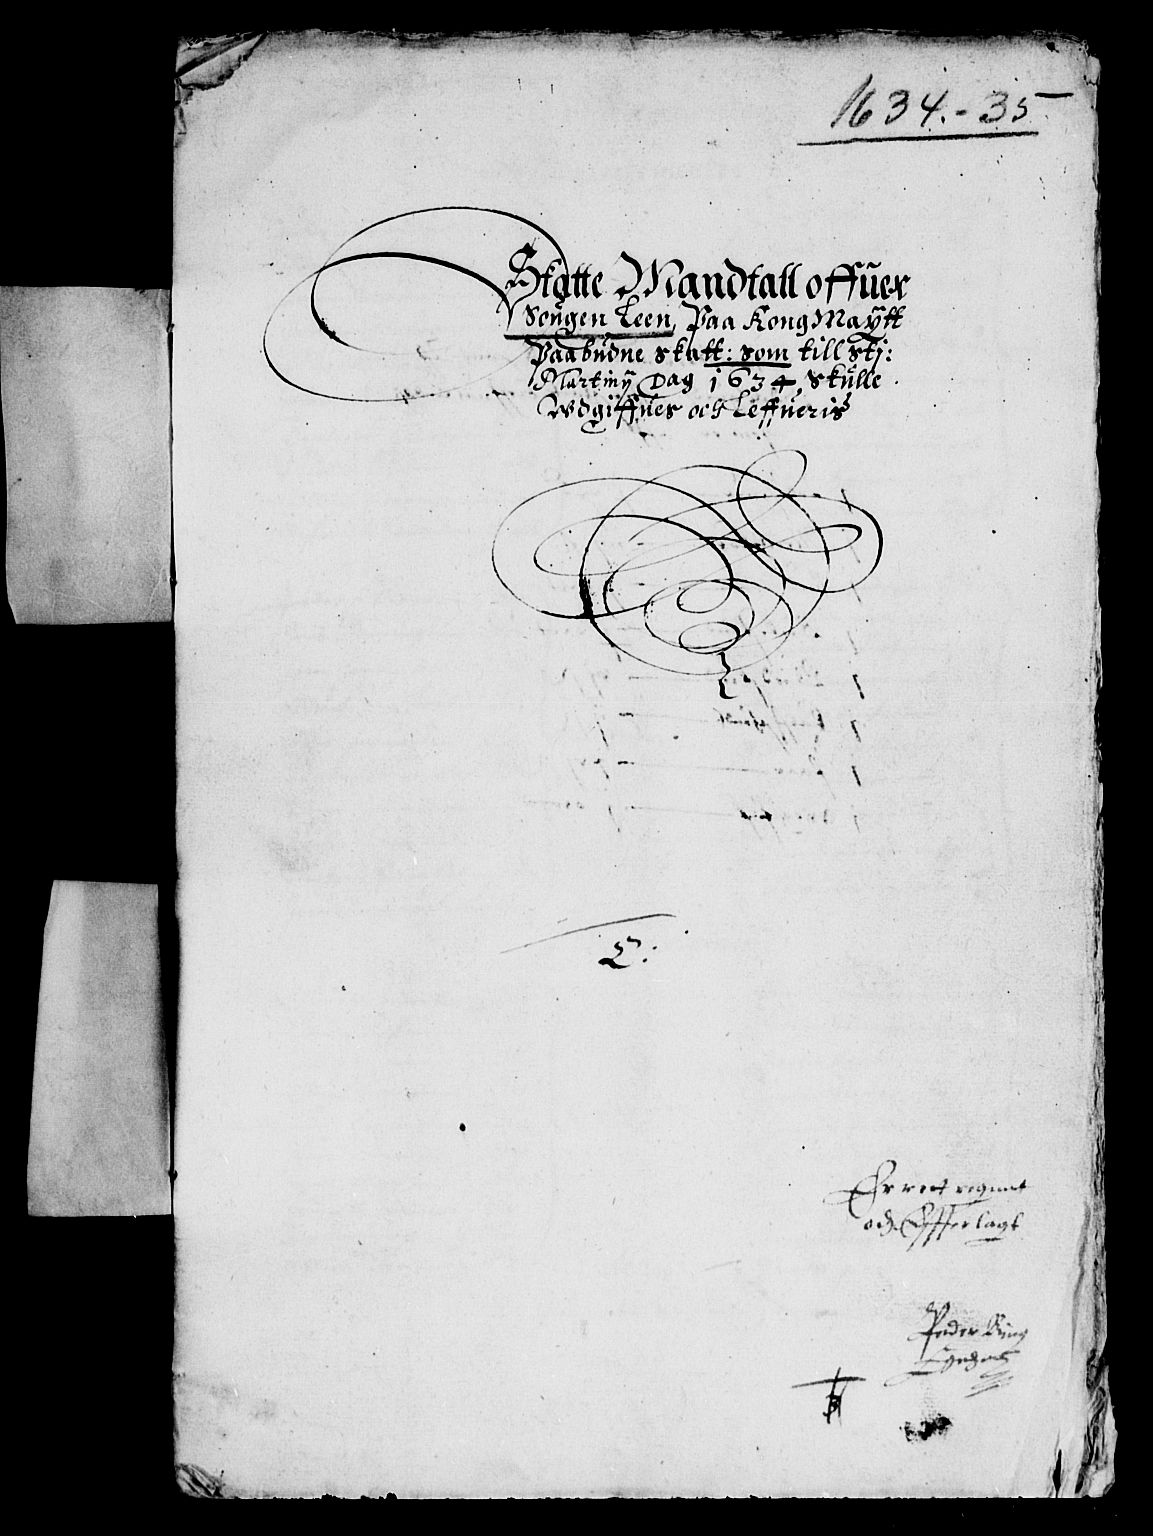 1634.-35
Skatte Mandtall offuer
Sougen Leen, Paa Kong Maÿtt
Paabudne skatt: som till Stj:
Martinÿ Dag 1634, Skulle
Wdgiffues och Leffueris
C:
Er ret regnet
och Effterlagt
Peder